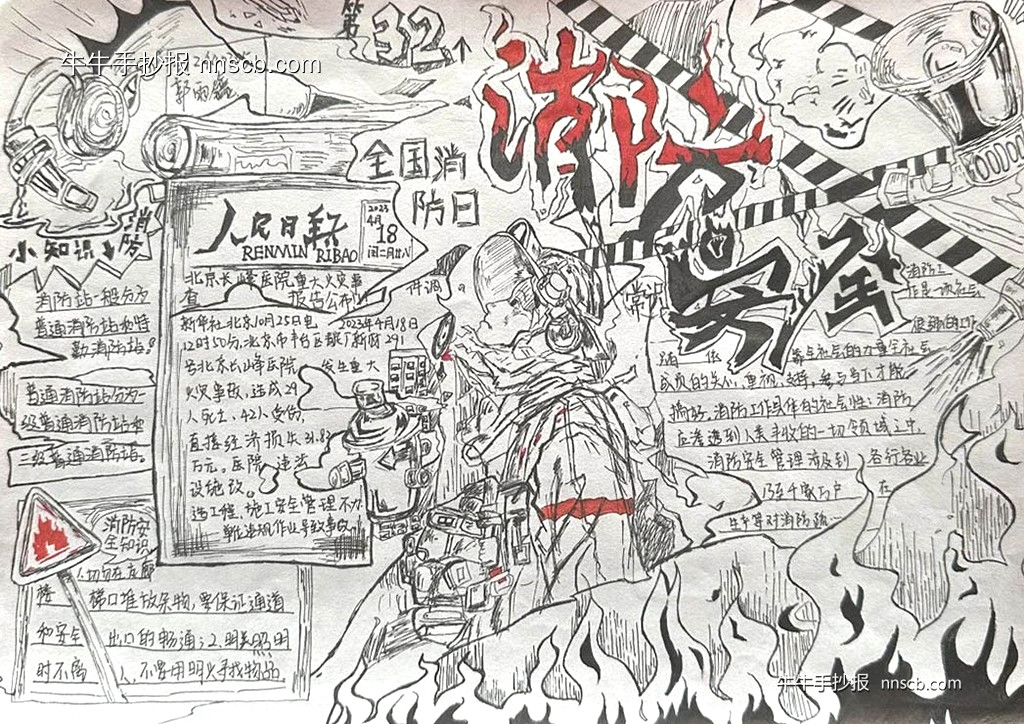 牛牛手抄报 nnscb.com
第32个
全国消
防日
消防
安全
人民日报
RENMIN RIBAO
2023
4月
18
小知识
消防
消防站一般分为
普通消防站和特
勤消防站。
普通消防站分为一
级普通消防站和
二级普通消防站。
北京长峰医院重大火灾事
报告公布
新华社北京10月25日电 2023年4月18日
12时50分,北京市丰台区靛厂新村291
号北京长峰医院 发生重大
火灾事故,造成29
人死亡、42人受伤,
直接经济损失31.82
万元。医院 违法
设施改
造工程、施工安全管理不力
讲调。
常识
消防工
作是一项社会
全社会的力量全社会
成员的关心,重视,支持,参与
搞好。消防工作具体的社会性:消防
应渗透到人类 的一切领域之中,
消防安全管理涉及到 各行各业
乃至千家万户 在
消防安
全知识
楼 梯口堆放杂物,要保证通道
和安全 出口的畅通;2.明 照明
时不离 人,不要用明火寻找物品。
牛牛手抄报 nnscb.com